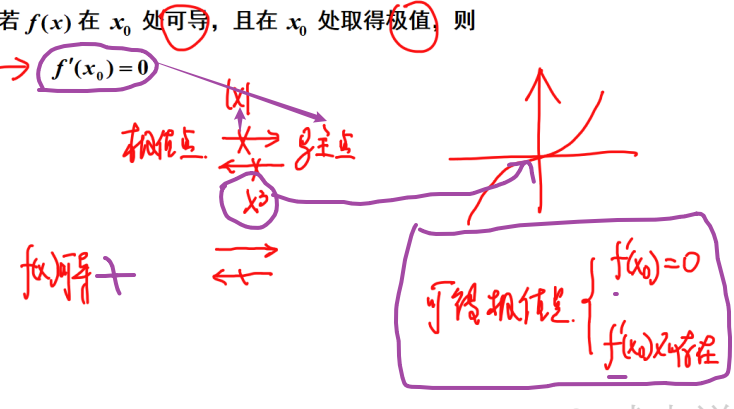 若 f(x) 在 x₀ 处可导，且在 x₀ 处取得极值，则
f'(x₀)=0
|x|
极值点 驻点
x³
f(x)可导 +
可疑极值点
f'(x₀)=0
f'(x₀)不存在